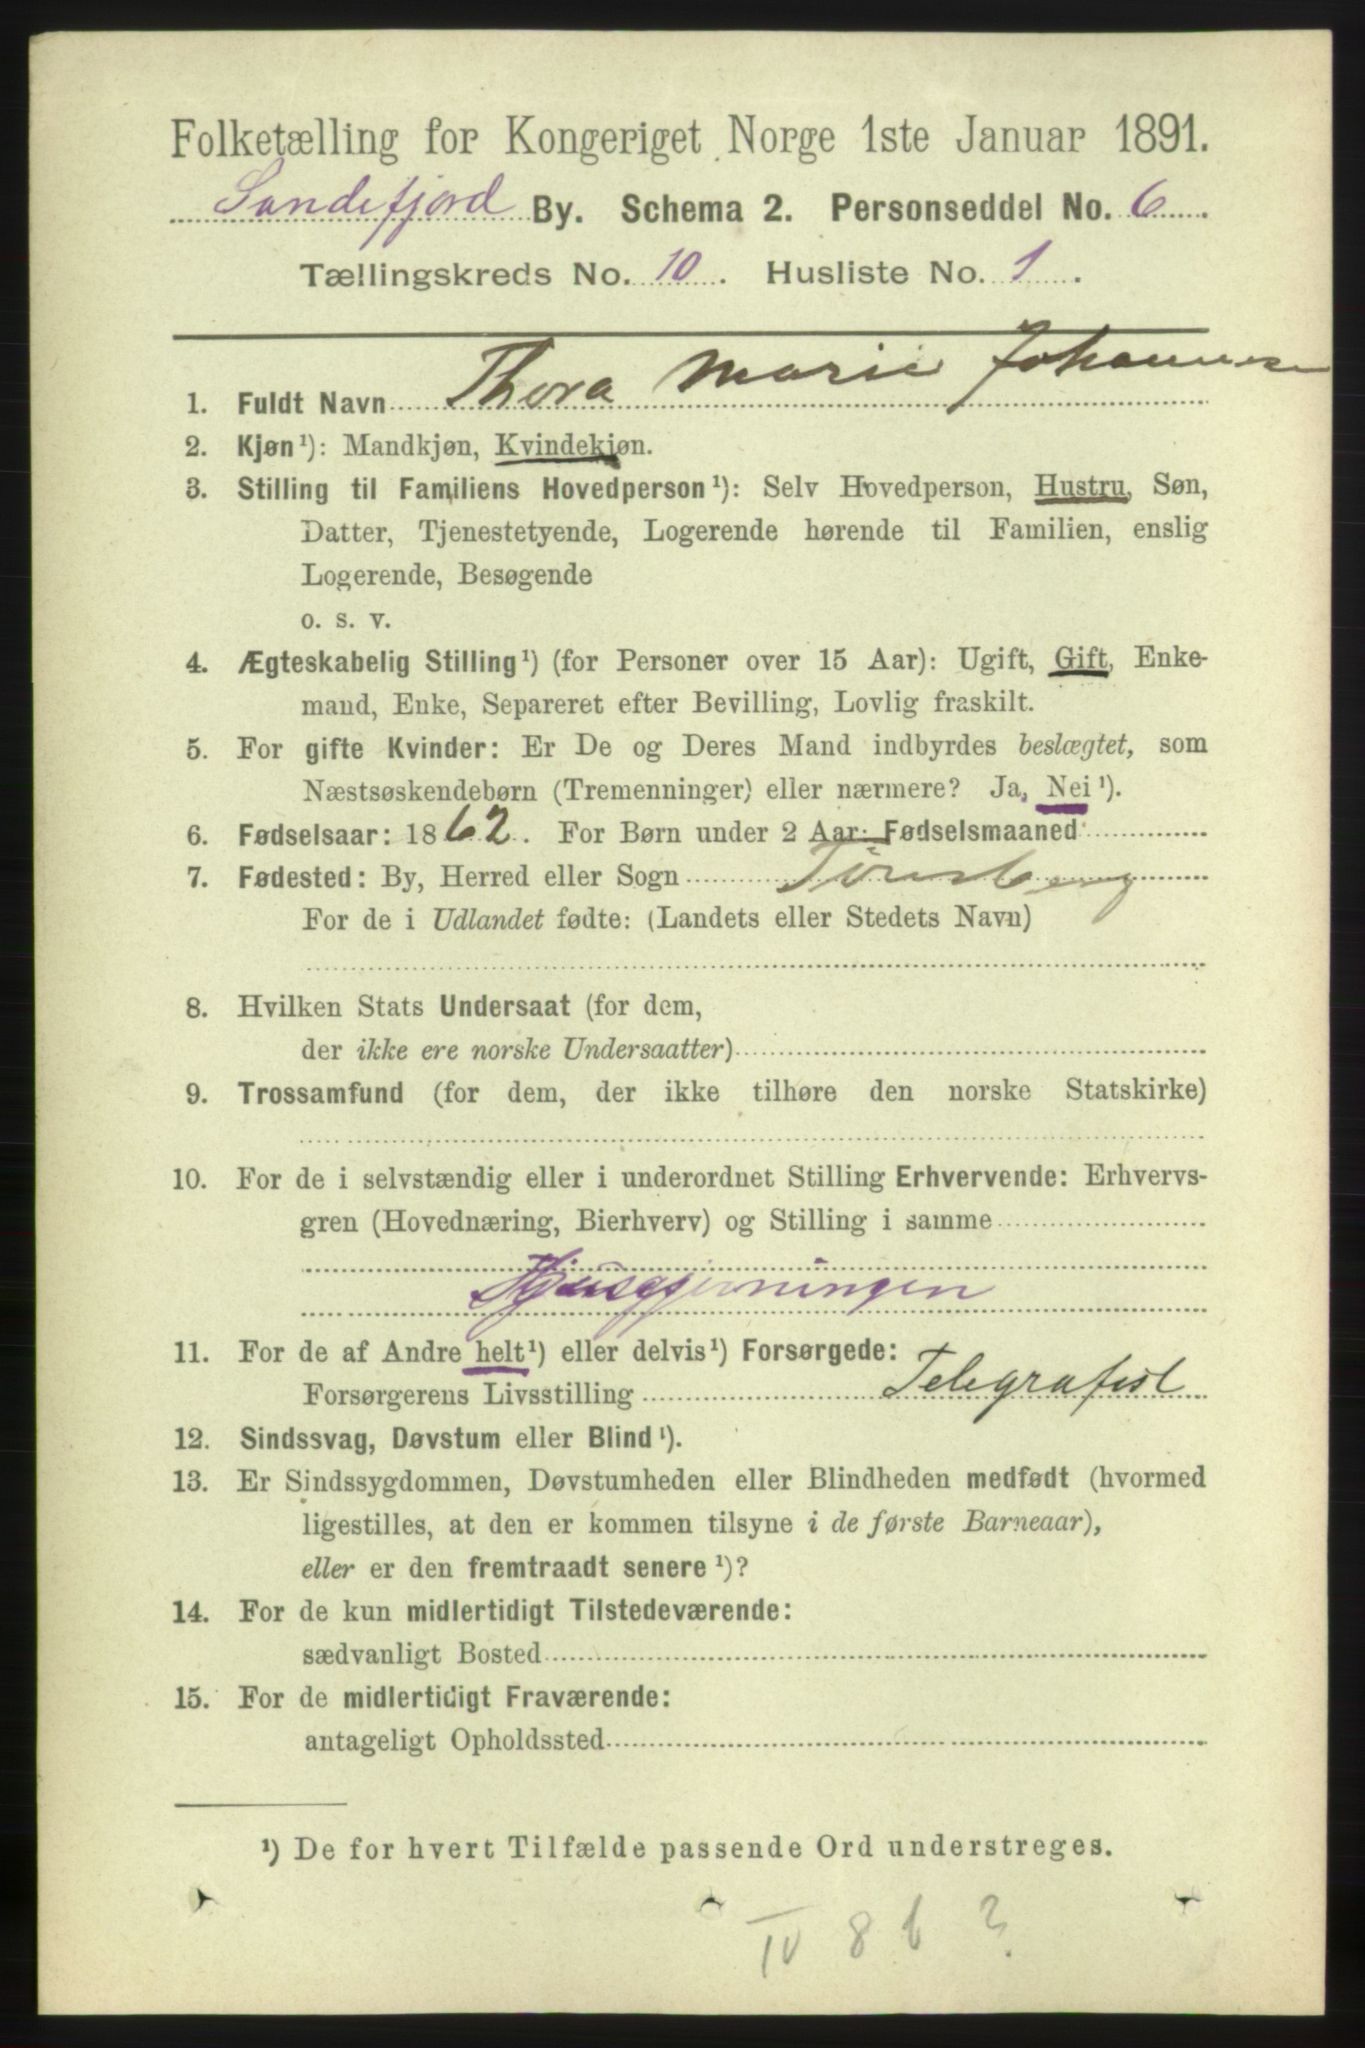 Folketælling for Kongeriget Norge 1ste Januar 1891.
Sandefjord By. Schema 2. Personseddel No. 6.
Tællingskreds No. 10. Husliste No. 1.
1. Fuldt Navn Thora Marie Johannesen
2. Kjøn¹): Mandkjøn, Kvindekjøn.
3. Stilling til Familiens Hovedperson¹): Selv Hovedperson, Hustru, Søn,
Datter, Tjenestetyende, Logerende hørende til Familien, enslig
Logerende, Besøgende
o. s. v.
4. Ægteskabelig Stilling¹) (for Personer over 15 Aar): Ugift, Gift, Enke-
mand, Enke, Separeret efter Bevilling, Lovlig fraskilt.
5. For gifte Kvinder: Er De og Deres Mand indbyrdes beslægtet, som
Næstsøskendebørn (Tremenninger) eller nærmere? Ja, Nei¹).
6. Fødselsaar: 1862. For Børn under 2 Aar: Fødselsmaaned
7. Fødested: By, Herred eller Sogn Tönsberg
For de i Udlandet fødte: (Landets eller Stedets Navn)
8. Hvilken Stats Undersaat (for dem,
der ikke ere norske Undersaatter)
9. Trossamfund (for dem, der ikke tilhøre den norske Statskirke)
10. For de i selvstændig eller i underordnet Stilling Erhvervende: Erhvervs-
gren (Hovednæring, Bierhverv) og Stilling i samme
Husgjerningen
11. For de af Andre helt¹) eller delvis¹) Forsørgede:
Forsørgerens Livsstilling Telegrafist
12. Sindssvag, Døvstum eller Blind¹).
13. Er Sindssygdommen, Døvstumheden eller Blindheden medfødt (hvormed
ligestilles, at den er kommen tilsyne i de første Barneaar),
eller er den fremtraadt senere¹)?
14. For de kun midlertidigt Tilstedeværende:
sædvanligt Bosted
15. For de midlertidigt Fraværende:
antageligt Opholdssted
¹) De for hvert Tilfælde passende Ord understreges.
IV 8 6 ?